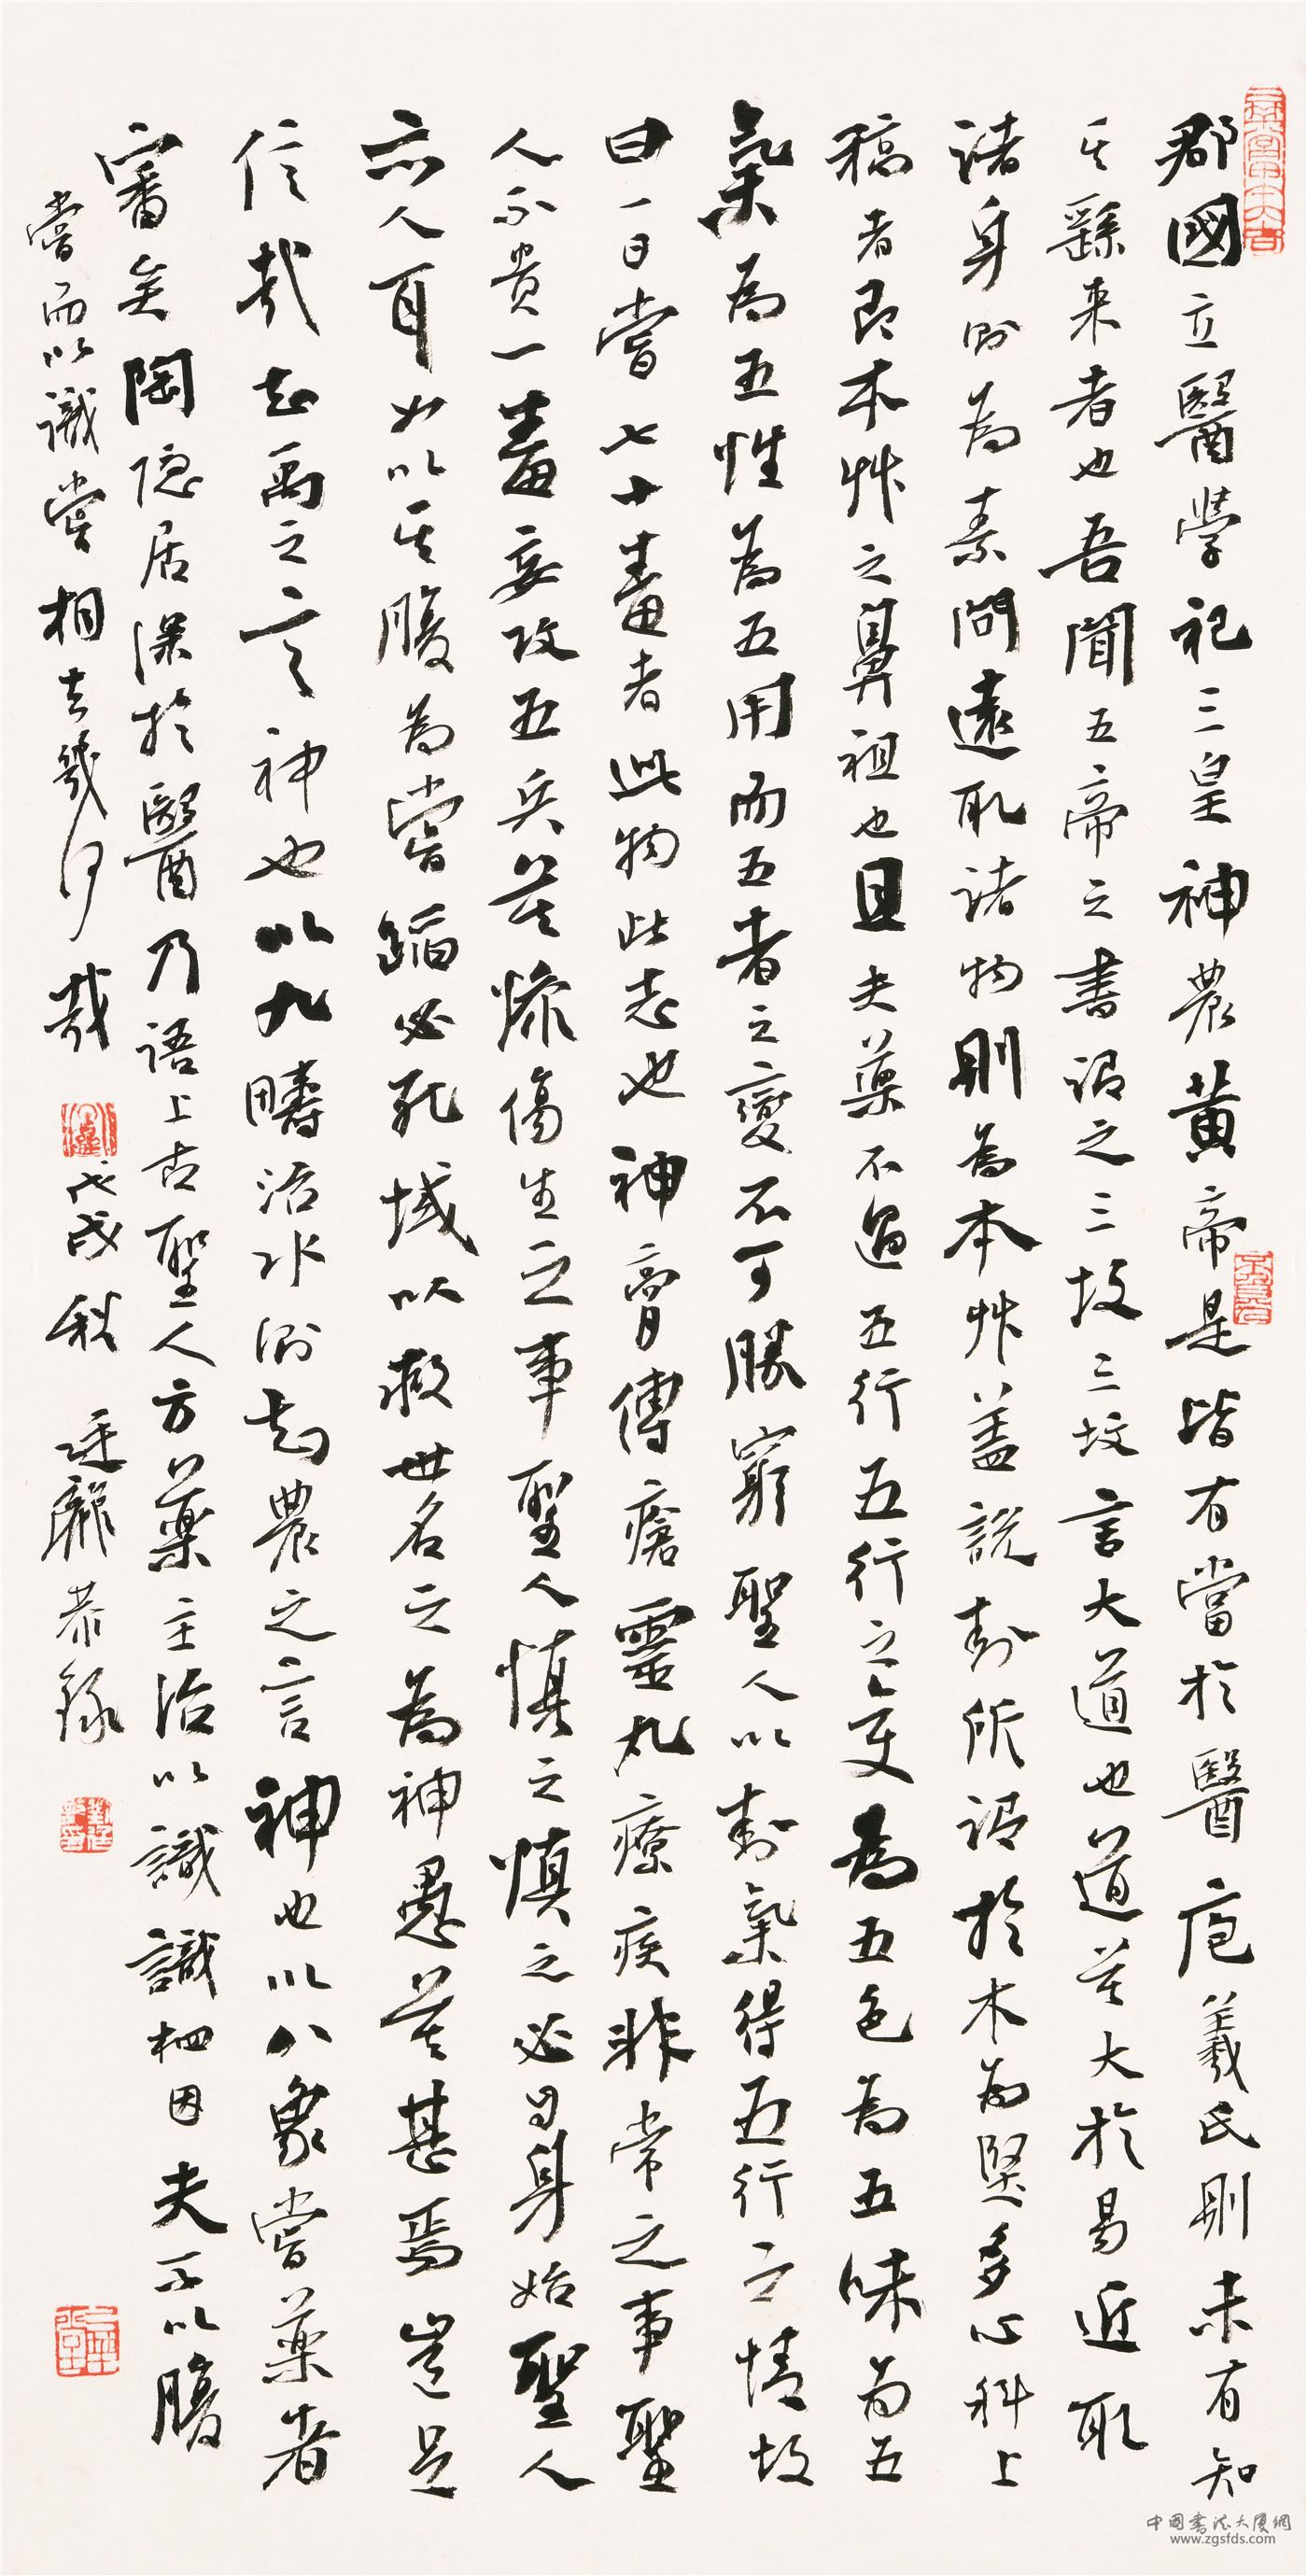 郡國立醫學祀三皇神農黃帝是皆有當於醫庖羲氏則未有知
其繇来者也吾聞五帝之書謂之三墳三墳言大道也道莫大於易近取
諸身則為素問遠取諸物則為本艸盖說卦所謂於木為堅多心科上
稿者即本艸之鼻祖也且夫藥不過五行五行之变為五色為五味為五
氣為五性為五用而五者之變不可勝窮聖人以卦氣得五行之情故
曰一日嘗七十毒者此物此志也神膏傅瘡靈丸療疾非常之事聖
人不貴一毒妄攻五兵莫慘傷生之事聖人慎之慎之必自身始聖人
亦人耳如以其腹為嘗蹈必死域以救世名之為神愚莫甚焉豈足
信哉知禹之言神也以九疇治水則知農之言神也以八象嘗藥者
審矣陶隐居深於醫乃語上古聖人方藥主治以識識相因夫不以腹
嘗而以識嘗相去幾何哉 戊戌秋 廷龍恭錄
中國書法大厦網
www.zgsfds.com